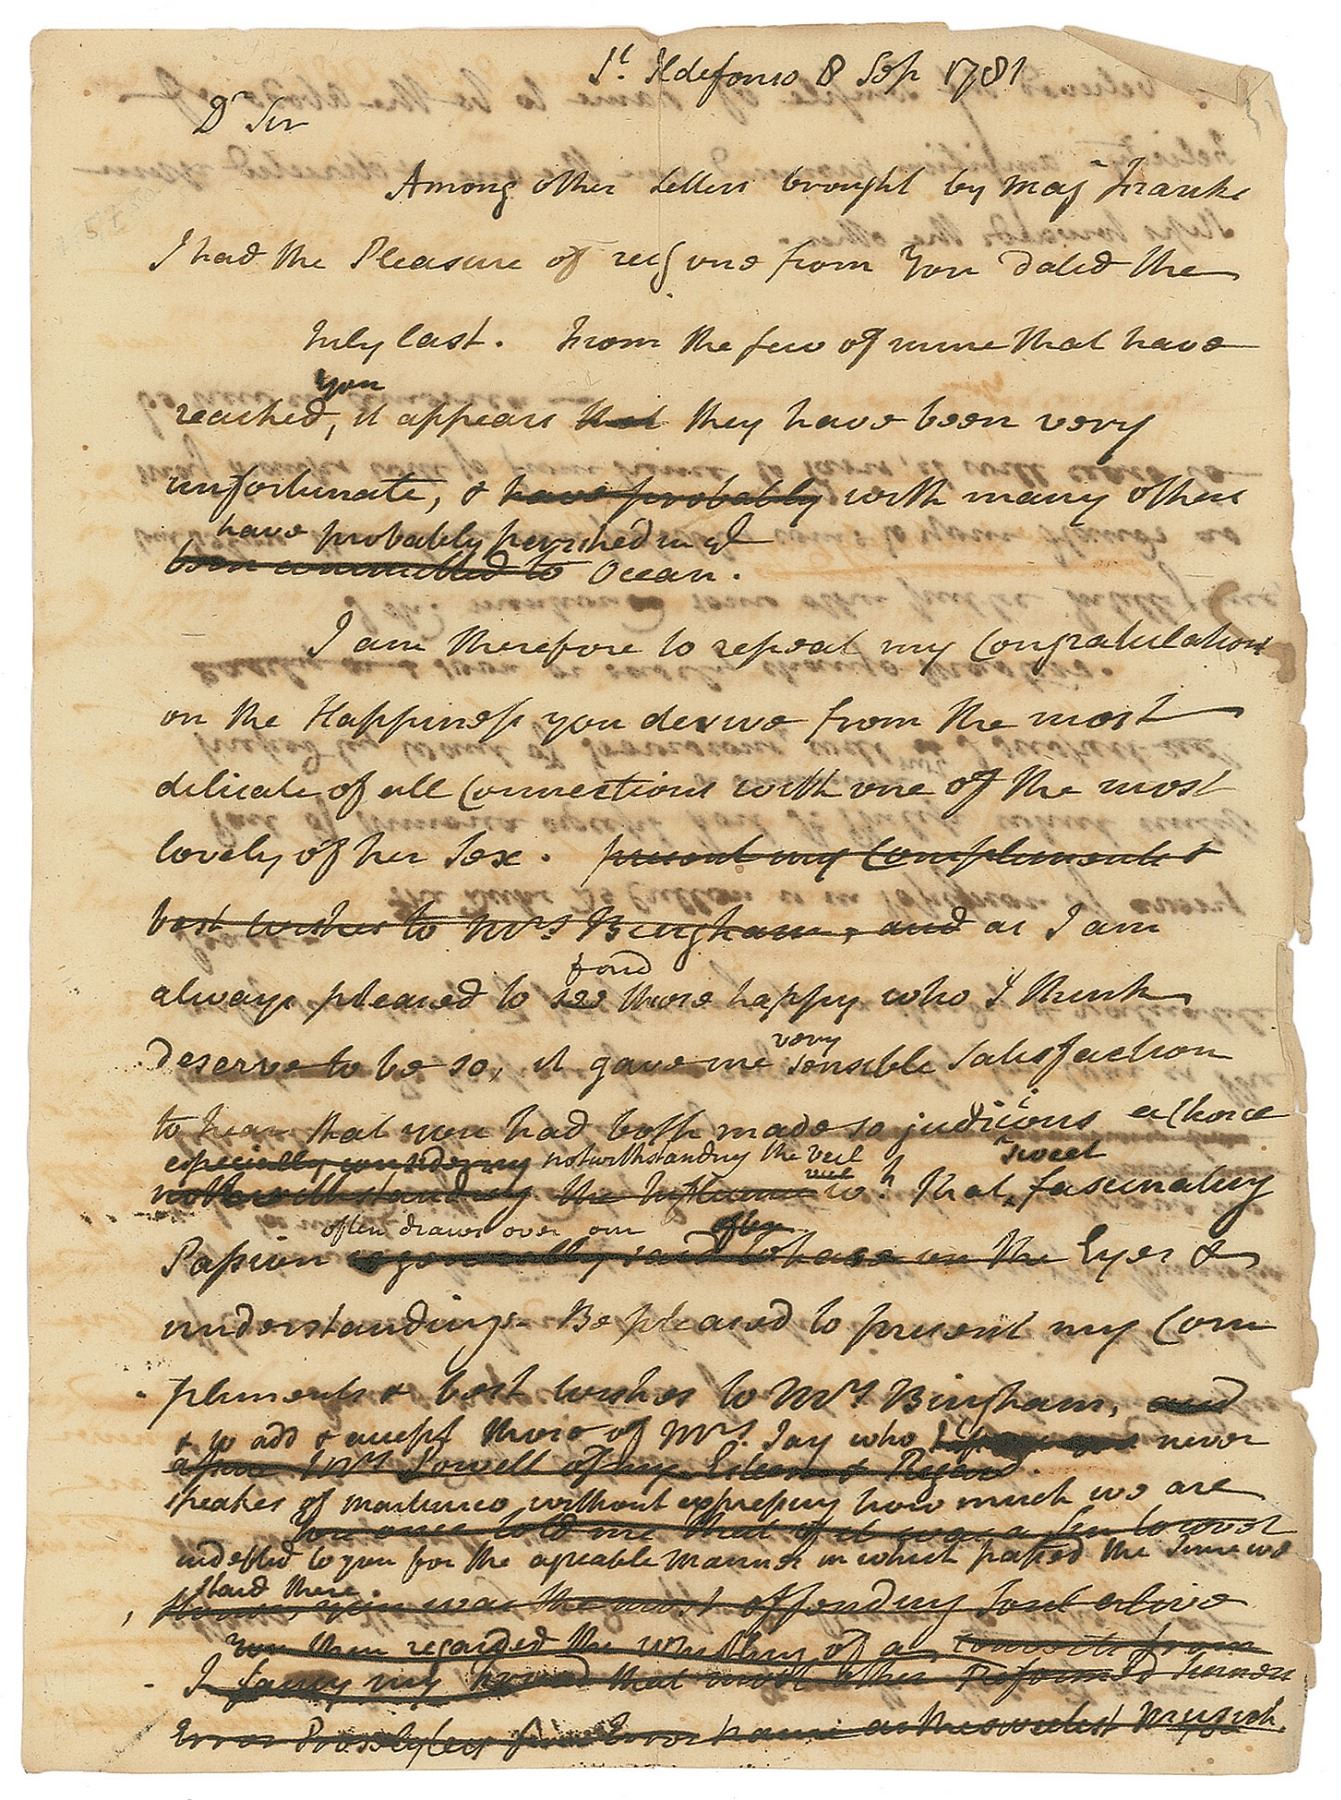 St. Ildefonso 8 Sep 1781
Dr Sir
Among other Letters brought by Majr Franks
I had the Pleasure of recg one from You dated the
July last. From the few of mine that have
you
reached, it appears that they have been very
unfortunate, & have probably with many others
have probably perished in ye
been committed to Ocean.
I am therefore to repeat my Congratulations
on the Happiness you derive from the most
delicate of all Connections with one of the most
lovely of her Sex. present my Compliments &
best wishes to Mrs Bingham, and as I am
find
always pleased to see those happy who I think
very
deserve to be so, it gave me sensible Satisfaction
to hear that you had both made so judicious a Choice
especially considering notwithstanding the veil
notwithstanding the Influence wh. that sweet fascinating
often draws over our often
Passion is generally said to have on the Eyes &
understanding. Be pleased to present my Com
pliments & best wishes to Mrs Bingham, and
& to add & accept those of Mrs. Jay who never
assure Mrs Powell of my Esteem & Regard.
speakes of martinico without expressing how much we are
You once told me that if it was a Sin to covet
indebted to you for the agreable Manner in which passed the Time we
staid there.
you was the most offending Soul alive
You then regarded the of a from
I fancy my friend that most other Reformed Sinners
Error Proselytes from Error as the sweetest Musick.